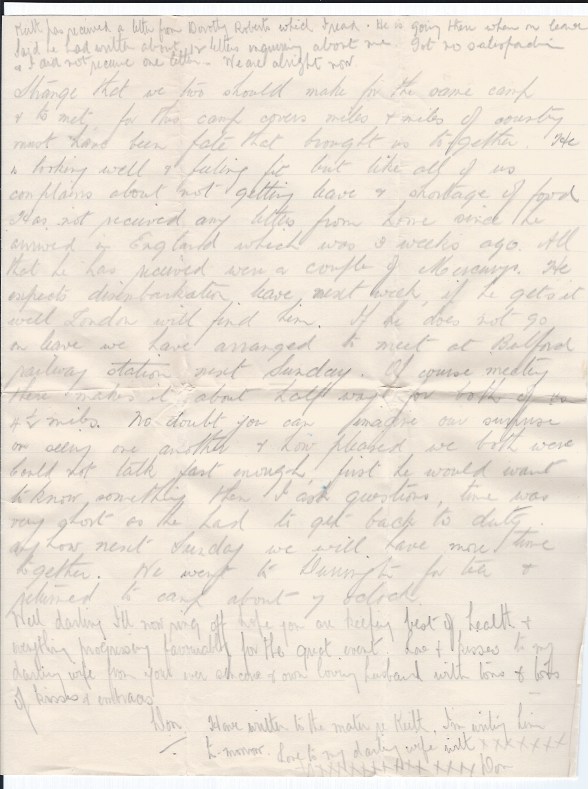 Keith has received a letter from Dorothy Roberts which I read. He is going there when on leave
Said he had written about 12 letters inquiring about me. Got no satisfaction
& I did not receive one letter. We are alright now
Strange that we two should make for the same camp
& to met, for this camp covers miles & miles of country
must have been fate that brought us together. He
is looking well & feeling fit but like all of us
complains about not getting leave & shortage of food
Has not received any letter from home since he
arrived in England which was 3 weeks ago. All
that he has received were a couple of Mercurys. He
expects disembarkation leave next week, if he gets it
well London will find him. If he does not go
on leave we have arranged to meet at Bulford
railway station next Sunday. Of course meeting
there makes it about half way for both of us
4½ miles. No doubt you can imagine our surprise
on seeing one another & how pleased we both were
Could not talk fast enough, first he would want
to know something then I ask questions, time was
very short as he had to get back to duty
any how next Sunday we will have more time
together. We went to Durrington for tea &
returned to camp about 7 oclock.
Well darling I'll now ring off hope you are keeping best of health &
everything progressing favourably for the quiet event. Love & kisses to my
darling wife from your ever sincere & own loving husband with tons & lots
of kisses & embraces
Don Have written to the mater re Keith, I'm writing him
to-morrow. Love to my darling wife with xxxxxxx
xxxxxxxxx xxxx Don